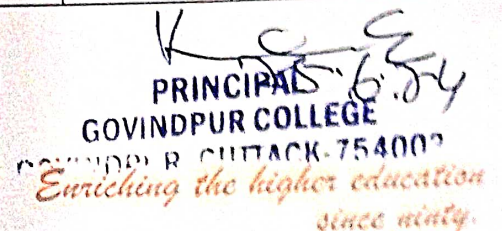 PRINCIPAL
GOVINDPUR COLLEGE
CUTTACK-754003
Enriching the higher education
since ninty.